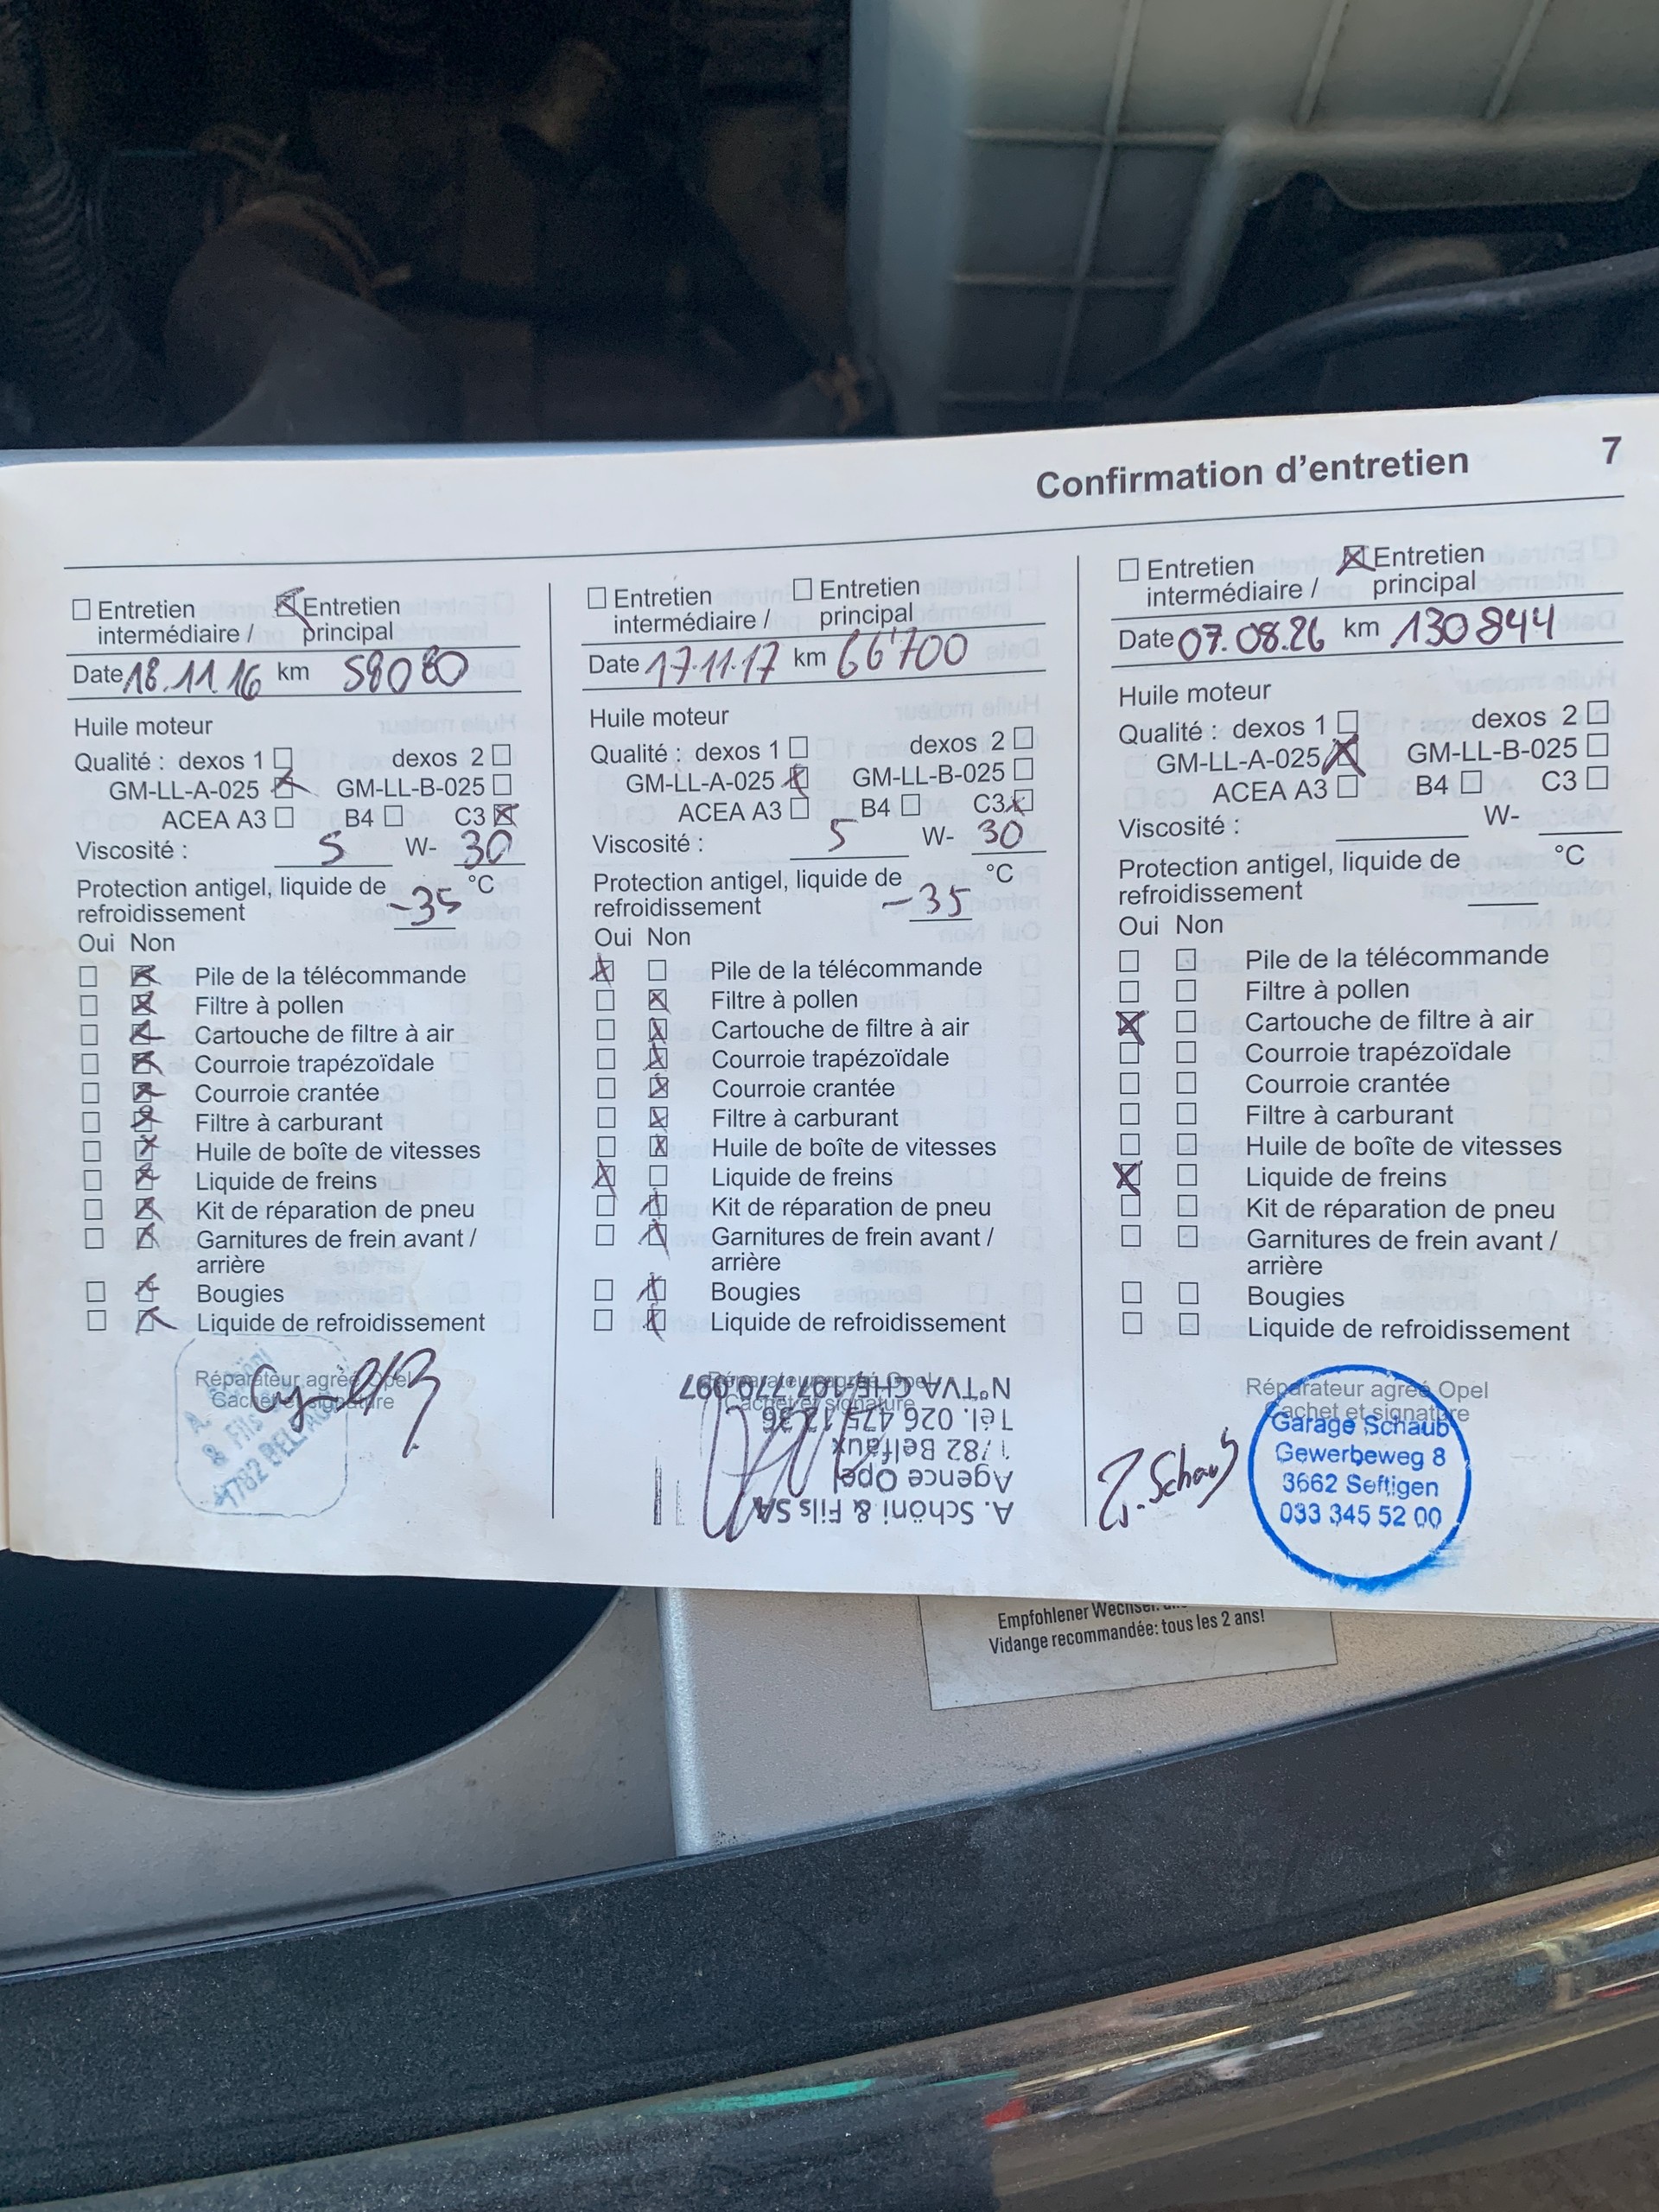 Confirmation d'entretien 7
☐ Entretien intermédiaire / ☒ Entretien principal
Date 18.11.16 km 58080
Huile moteur
Qualité : dexos 1 ☐ dexos 2 ☐
GM-LL-A-025 ☒ GM-LL-B-025 ☐
ACEA A3 ☐ B4 ☐ C3 ☒
Viscosité : 5 W- 30
Protection antigel, liquide de °C
refroidissement -35
Oui Non
☐ ☒ Pile de la télécommande
☐ ☒ Filtre à pollen
☐ ☒ Cartouche de filtre à air
☐ ☒ Courroie trapézoïdale
☐ ☒ Courroie crantée
☐ ☒ Filtre à carburant
☐ ☒ Huile de boîte de vitesses
☐ ☒ Liquide de freins
☐ ☒ Kit de réparation de pneu
☐ ☒ Garnitures de frein avant /
arrière
☐ ☒ Bougies
☐ ☒ Liquide de refroidissement
Réparateur agréé Opel
Cachet et signature
& Fils
1782
☐ Entretien intermédiaire / ☐ Entretien principal
Date 17.11.17 km 66'700
Huile moteur
Qualité : dexos 1 ☐ dexos 2 ☐
GM-LL-A-025 ☒ GM-LL-B-025 ☐
ACEA A3 ☐ B4 ☐ C3 ☒
Viscosité : 5 W- 30
Protection antigel, liquide de °C
refroidissement -35
Oui Non
☒ ☐ Pile de la télécommande
☐ ☒ Filtre à pollen
☐ ☒ Cartouche de filtre à air
☐ ☒ Courroie trapézoïdale
☐ ☒ Courroie crantée
☐ ☒ Filtre à carburant
☐ ☒ Huile de boîte de vitesses
☒ ☐ Liquide de freins
☐ ☒ Kit de réparation de pneu
☐ ☒ Garnitures de frein avant /
arrière
☐ ☒ Bougies
☐ ☒ Liquide de refroidissement
Réparateur agréé Opel
Cachet et signature
A. Schöni & Fils SA
Agence Opel
1782 Belfaux
Tél. 026 475 12 36
N°TVA CHE-107 770 097
☐ Entretien intermédiaire / ☒ Entretien principal
Date 07.08.26 km 130844
Huile moteur
Qualité : dexos 1 ☐ dexos 2 ☐
GM-LL-A-025 ☒ GM-LL-B-025 ☐
ACEA A3 ☐ B4 ☐ C3 ☐
Viscosité : W-
Protection antigel, liquide de °C
refroidissement
Oui Non
☐ ☐ Pile de la télécommande
☐ ☐ Filtre à pollen
☒ ☐ Cartouche de filtre à air
☐ ☐ Courroie trapézoïdale
☐ ☐ Courroie crantée
☐ ☐ Filtre à carburant
☐ ☐ Huile de boîte de vitesses
☒ ☐ Liquide de freins
☐ ☐ Kit de réparation de pneu
☐ ☐ Garnitures de frein avant /
arrière
☐ ☐ Bougies
☐ ☐ Liquide de refroidissement
Réparateur agréé Opel
Cachet et signature
Schaub
Garage Schaub
Gewerbeweg 8
3662 Seftigen
033 345 52 00
Empfohlener Wechsel:
Vidange recommandée: tous les 2 ans!